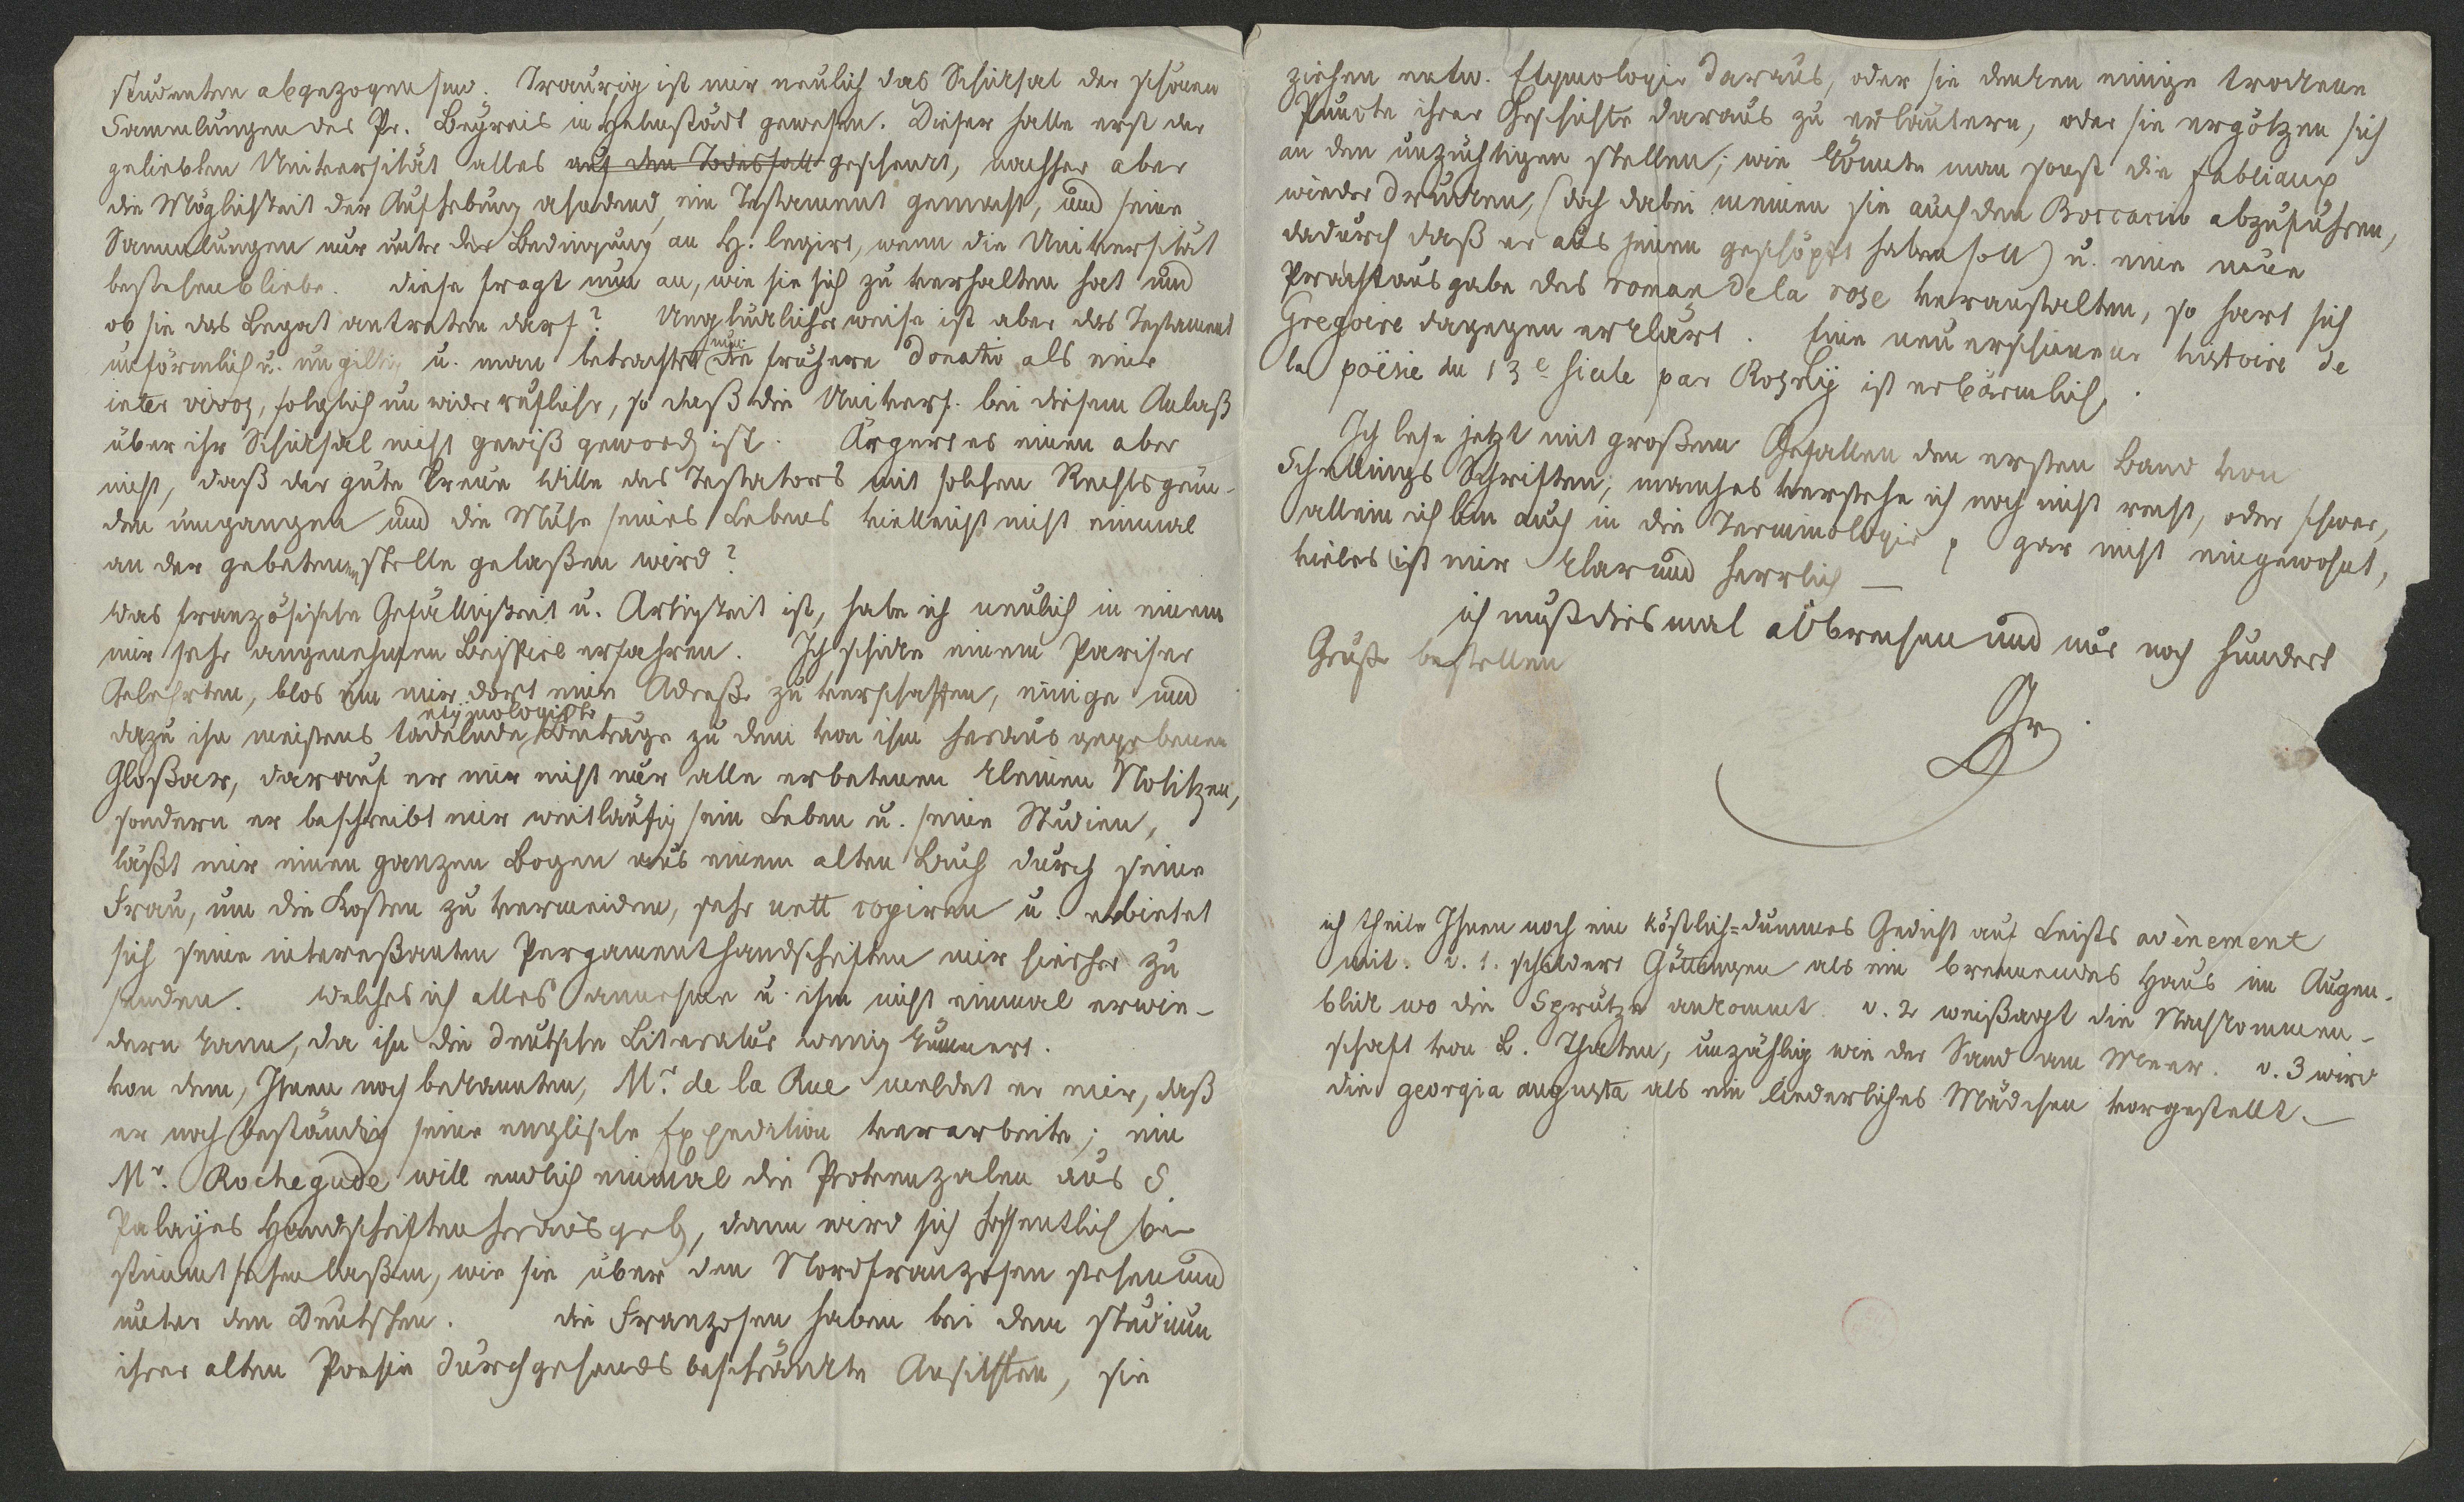 studenten abgezogen sind. Traurig ist mir neulich das Schicksal der schönen
Sammlungen des Pr. Beyreis in Helmstädt gewesen. Dieser hatte erst der
geliebten Universität alles auf den Todesfall geschenckt, nachher aber
die Möglichkeit der Aufhebung ahndend, ein Testament gemacht, und seine
Sammlungen nur unter der Bedingung an H. legirt, wenn die Universität
bestehenbliebe. diese fragt nun an, wie sie sich zu verhalten hat und
ob sie das Legat antreten darf? Unglücklicherweise ist aber das Testament
unförmlich u. ungiltig u. man betrachtet nun die frühere Donatio als eine
inter vivos, folglich unwiderrufliche, so daß die Univers. bei diesem Anlaß
über ihr Schicksal nicht gewiß geword ist. Ärgert es einen aber
nicht, daß der gute treue Wille des Testators mit solchen Rechtsgrün-
den umgangen und die Mühe seines Lebens vielleicht nicht einmal
an der gebetenen stelle gelaßen wird?
Was französische Gefälligkeit u. Artigkeit ist, habe ich neulich in einem
mir sehr angenehmen Beispiel erfahren. Ich schicke einem Pariser
Gelehrten, blos um mir dort eine Adreße zu verschaffen, einige und
dazu ihn meistens tadelnde etymologische Beiträge zu dem von ihm herausgegebenen
Gloßar, darauf er mir nicht nur alle erbetenen kleinen Notitzen,
sondern er beschreibt mir weitläufig sein Leben u. seine Studien,
läßt mir einen ganzen Bogen aus einem alten Buch durch seine
Frau, um die Kosten zu vermeiden, sehr nett copiren u. erbietet
sich seine intereßanten Pergamenthandschriften mir hierher zu
senden. Welches ich alles annehme u. ihm nicht einmal erwie-
dern kann, da ihn die deutsche Literatur wenig kümmert.
von dem, Ihnen noch bekannten, Mr. de la Rue meldet er mir, daß
er noch beständig seine englische Expedition verarbeite; ein
Mr. Rochegude will endlich einmal die Provenzalen aus S.
Palayes Handschriften herausgeb, dann wird sich hoffentlich be
stimmt sehen laßen, wie sie über den Nordfranzosen stehen und
unter den Deutschen. die Franzosen haben bei dem studium
ihrer alten Poesie durchgehends beschränckte Ansichten, sie
ziehen entw. Etymologie daraus, oder sie dencken einige trockene
Puncte ihrer Geschichte daraus zu erläutern, oder sie ergötzen sich
an den unzüchtigen stellen; wie könnte man sonst die fabliaux
wieder drucken, (doch dabei meinen sie auch den Boccaccio abzuführen,
dadurch daß er aus jenen geschöpft haben soll) u. eine neue
Prachtausgabe des roman de la rose veranstalten, so hart sich
Gregoire dagegen erklärt. Eine neu erschienene histoire de
la poësie du 13e siecle par Rosny ist erbärmlich.
Ich lese jetzt mit großem Gefallen den ersten Band von
Schellings Schriften; manches verstehe ich noch nicht recht, oder schwer,
allein ich bin auch in die Terminologie gar nicht eingewohnt,
vieles ist mir klar und herrlich —
ich muß diesmal abbrechen und nur noch hundert
Grüße bestellen
Gr.
ich theile Ihnen noch ein köstlich=dummes Gedicht auf Leists avènement
mit. v. 1. schildert Göttingen als ein brennendes Haus im Augen-
blick wo die Sprütze ankommt. v. 2 weißagt die Nachkommen-
schaft von L. Thaten, unzählig wie der Sand am Meer. v. 3 wird
die georgia augusta als ein liederliches Mädchen vorgestellt. —